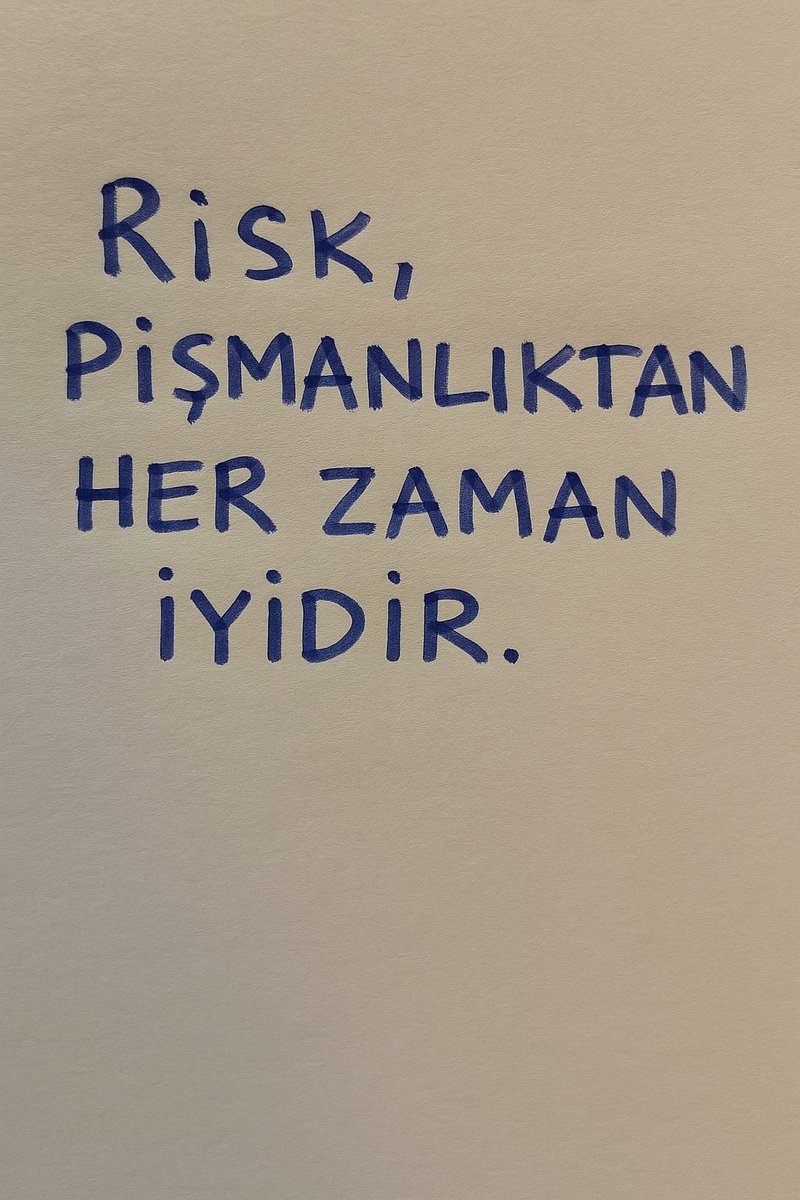 Risk,
PİŞMANLIKTAN
HER ZAMAN
İYİDİR.